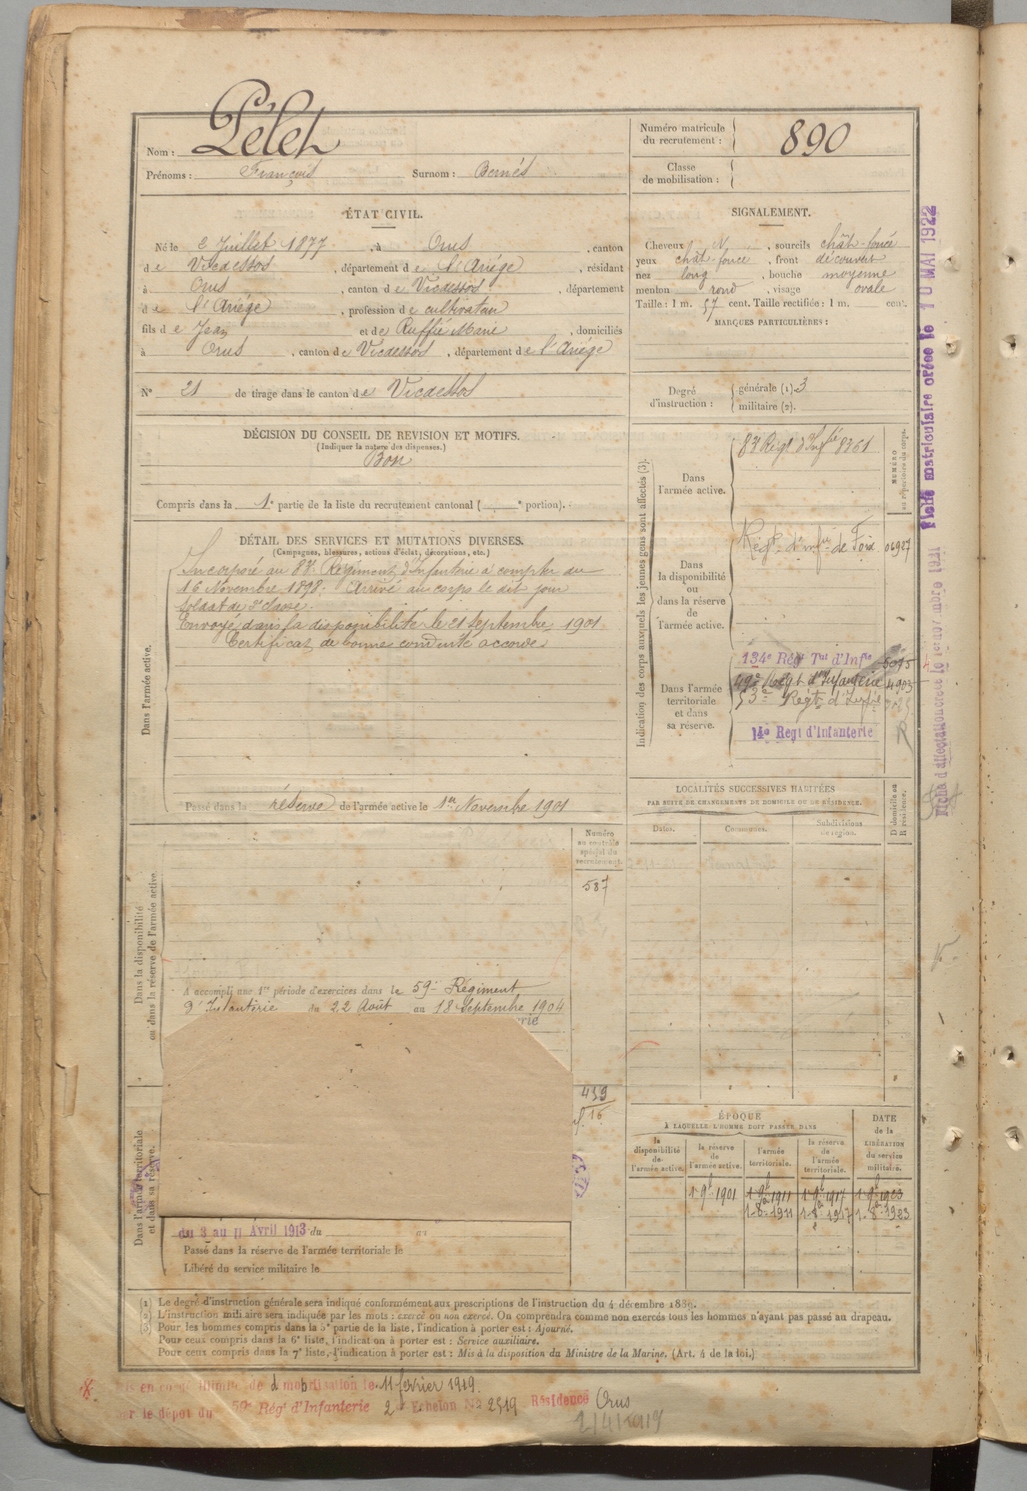 Nom : Pélet
Prénoms : François Surnom : Bernés
Numéro matricule
du recrutement : 890
Classe
de mobilisation :
ÉTAT CIVIL.
Né le 2 Juillet 1877, à Orus, canton
de Vicdessos, département de l'Ariége, résidant
à Orus, canton de Vicdessos, département
de l'Ariége, profession de cultivateur
fils de Jean et de Ruffié Marie, domiciliés
à Orus, canton de Vicdessos, département de l'Ariége
N° 21 de tirage dans le canton de Vicdessos
SIGNALEMENT.
Cheveux N, sourcils chât-foncé
yeux chât foncé, front découvert
nez long, bouche moyenne
menton rond, visage ovale
Taille : 1 m. 57 cent. Taille rectifiée : 1 m. cent.
MARQUES PARTICULIÈRES :
Degré
d'instruction :
générale (1). 3
militaire (2).
DÉCISION DU CONSEIL DE REVISION ET MOTIFS.
(Indiquer la nature des dispenses.)
Bon
Compris dans la 1e partie de la liste du recrutement cantonal ( e portion).
DÉTAIL DES SERVICES ET MUTATIONS DIVERSES.
(Campagnes, blessures, actions d'éclat, décorations, etc.)
Dans l'armée active.
Incorporé au 83e Régiment d'Infanterie à compter du
16 Novembre 1898. Arrivé au corps le dit jour
soldat de 2e classe.
Envoyé dans la disponibilité le 21 septembre 1901
Certificat de bonne conduite accordé.
Passé dans la réserve de l'armée active le 1er Novembre 1901
Indication des corps auxquels les jeunes gens sont affectés (3).
NUMÉRO
Dans
l'armée active.
83e Régt d'Infie 8361
Dans
la disponibilité
ou
dans la réserve
de
l'armée active.
Régt d'Infie de Foix 06927
Dans l'armée
territoriale
et dans
sa réserve.
134e Rég Tal d'Infie 5095
49e Régt d'Infanterie 4903
53e Régt d'Infie
14e Régt d'Infanterie
R
LOCALITÉS SUCCESSIVES HABITÉES
PAR SUITE DE CHANGEMENTS DE DOMICILE OU DE RÉSIDENCE.
Dates. Communes. Subdivisions
de région.
D domicile ou
R résidence.
Dans la disponibilité
ou dans la réserve de l'armée active.
Numéro
au contrôle
spécial du
recrutement.
587
A accompli une 1re période d'exercices dans le 59e Régiment
d'Infanterie du 22 Août au 18 Septembre 1904
439
16
Dans l'armée territoriale
et dans sa réserve.
du 3 au 11 Avril 1913 du au
Passé dans la réserve de l'armée territoriale le
Libéré du service militaire le
ÉPOQUE
À LAQUELLE L'HOMME DOIT PASSER DANS
la
disponibilité
de
l'armée active.
la réserve
de
l'armée active.
l'armée
territoriale.
la réserve
de
l'armée
territoriale.
DATE
de la
LIBÉRATION
du service
militaire.
1 9bre 1901 1 9bre 1911 1 9bre 1917 1 9bre 1923
1-8bre 1911 1-8bre 1917 1-8bre 1923
(1) Le degré d'instruction générale sera indiqué conformément aux prescriptions de l'instruction du 4 décembre 1889.
(2) L'instruction militaire sera indiquée par les mots : exercé ou non exercé. On comprendra comme non exercés tous les hommes n'ayant pas passé au drapeau.
(3) Pour les hommes compris dans la 5e partie de la liste, l'indication à porter est : Ajourné.
Pour ceux compris dans la 6e liste, l'indication à porter est : Service auxiliaire.
Pour ceux compris dans la 7e liste, l'indication à porter est : Mis à la disposition du Ministre de la Marine. (Art. 4 de la loi.)
en congé illimité de démobilisation le 11 février 1919.
le dépôt du 59e Régt d'Infanterie 2e Echelon No 2519 Résidence Orus
Fiche matriculaire créée le 10 MAI 1922